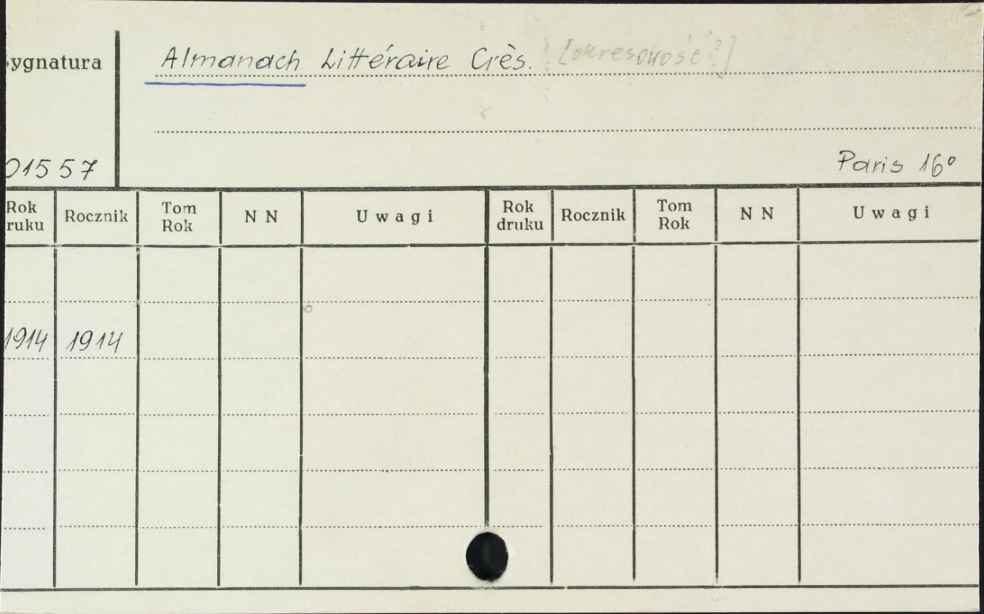 ygnatura
Almanach Littéraire Crès. [okresowość?]
01557
Paris 16°
Rok ruku Rocznik Tom Rok N N Uwagi Rok druku Rocznik Tom Rok N N Uwagi
1914 1914